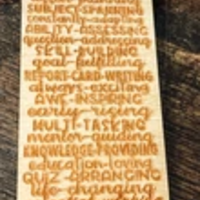 SUBJECT-SPANNING
constantly-adapting
ABILITY-ASSESSING
question-addressing
SKILL-BUILDING
goal-fulfilling
REPORT-CARD-WRITING
always-exciting
AWE-INSPIRING
early-rising
MULTI-TASKING
mentor-guiding
KNOWLEDGE-PROVIDING
education-loving
QUIZ-ARRANGING
life-changing